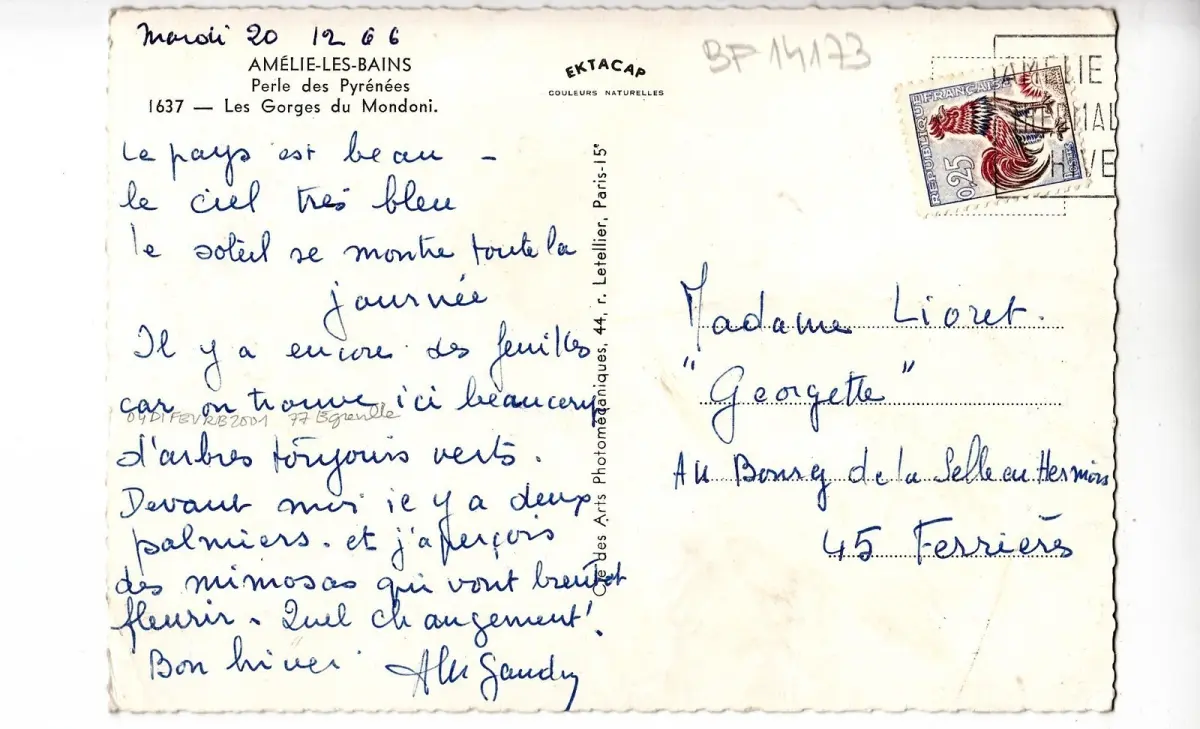 Mardi 20 12 66
AMÉLIE-LES-BAINS
Perle des Pyrénées
1637 — Les Gorges du Mondoni.
EKTACAP
COULEURS NATURELLES
BF 14173
AMELIE
HIVE
RÉPUBLIQUE FRANÇAISE
0,25
Le pays est beau -
le ciel très bleu
le soleil se montre toute la
journée
Il y a encore des feuilles
car on trouve ici beaucoup
77 Egreville
d'arbres toujours verts.
Devant moi il y a deux
palmiers. et j'aperçois
des mimosas qui vont bientôt
fleurir. Quel changement!
Bon hiver
Cie des Arts Photomécaniques, 44, r. Letellier, Paris-15e
Madame Lioret.
"Georgette"
Au Bourg de la Selle en Hermois
45 Ferrières